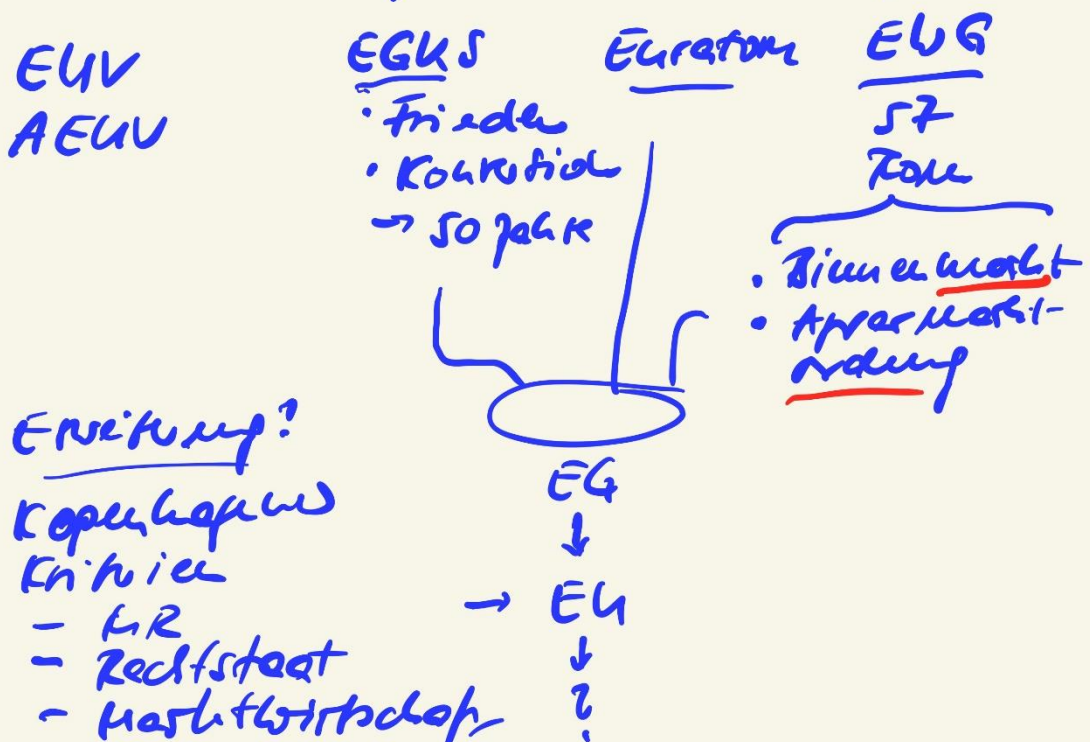 EUV
AEUV
EGKS
• Frieden
→ 50 Jahre
Euratom
EWG
57
Rom
• Binnenmarkt
• Agrarmarkt-
ordnung
EG
↓
→ EU
↓
?
Erweiterung?
Kopenhagener
Kriterien
- MR
- Rechtstaat
- Marktwirtschaft